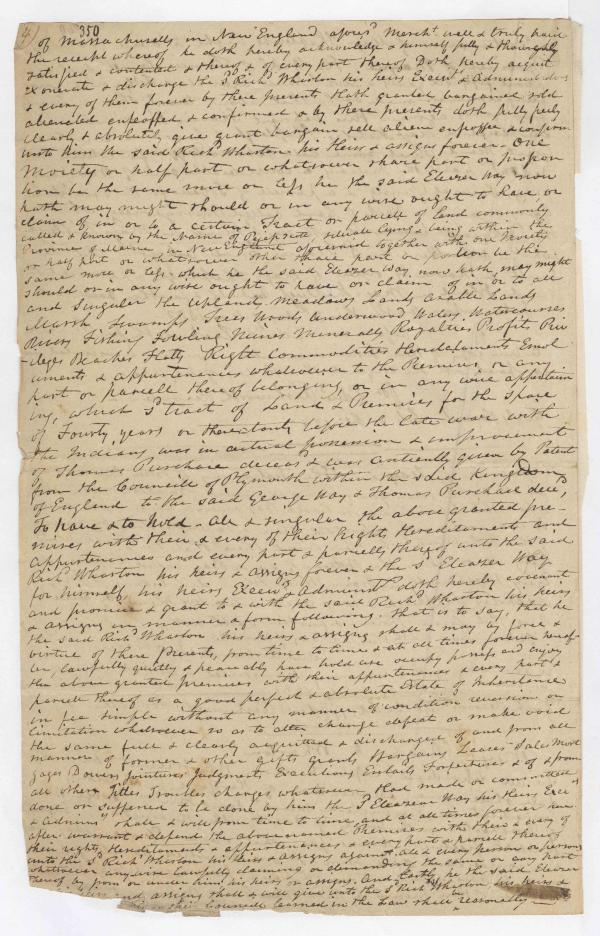 4) 350
of Massachusetts in New England afores.d Merch.t well & truly paid
the receipt whereof he doth hereby acknowledge & himself fully & thoroughly
satisfied & contented & thereof & of every part thereof Doth hereby acquit
exonerate & discharge the s.d Rich.d Wharton his heirs Execut.s & Administrators
& every of them forever by these presents Hath granted bargained sold
aliened enfeoffed & confirmed & by these presents doth fully freely
clearly & absolutely give grant bargain sell alien enfeoffe & confirm
unto him the said Rich.d Wharton his Heirs & assigns forever. One
Moiety or half part or whatsoever share part or propor
tion be the same more or less he the said Eleazer Way now
hath may might should or in any wise ought to have or
claim of in or to a certain Tract or parcell of land commonly
called & known by the Name of Pejepscott situate lying & being within the
Province of Maine in New England aforesaid together with one Moiety
or half part or whatsoever other share part or portion be the
same more or less which he the said Eleazer Way, now hath may might
should or in any wise ought to have or claim of in or to all
and Singular the Upland, Meadows Lands arable Lands
Marsh, Swamps Trees Woods Underwood Waters, Watercourses
Rivers Fishing Fowling Mines Mineralls Royalties Profits Priv
-leges Beaches Flatts Right Commodities Heredataments Emol
uments & appurtenances whatsoever to the Premises or any
part or parcell thereof belonging, or in any wise appertain
ing, which s.d tract of Land & Premises for the space
of Fourty years or thereabouts before the late war with
the Indians, was in actual possession & improvement
of Thomas Purchase deceas.d & was antiently given by Patent
from the Councile of Plymouth within the said Kingdom
of England to the said George Way & Thomas Purchase dece.d,
To have & to hold - all & singular the above granted pre-
mises with their & every of their Rights Hereditaments and
appurtenances and every part & parcell thereof unto the said
Rich.d Wharton his heirs & assigns forever & the s.d Eleazer Way
for himself his heirs Execu.rs & Administ.rs doth hereby covenant
and promise & grant to & with the said Rich.d Wharton his heirs
& assigns in manner & form following. that is to say, that he
the said Rich.d Wharton his heirs & assigns shall & may by force &
virtue of these Presents, from time to time & at all times forever hereaf-
ter, lawfully quietly & peaceably have hold use occupy possess and enjoy
the above granted premises with their appurtenances & every part &
parcell thereof as a good perfect & absolute Estate of Inheritance
in fee simple without any manner of condition reversion or
limitation whatsoever so as to alter change defeat or make void
the same full & clearly acquitted & discharged of and from all
manner of former & other gifts grants Bargains Leases Sales Mort
gages Dowers Jointures Judgments Executions Entails Forfeitures & of & from
all other Titles Troubles charges whatsoever had made or committed
done or suffered to be done by him the s.d Eleazer Way his Heirs Exec.rs
& Admin.rs shall & will from time to time and at all times forever here
after warrant & defend the above named Premises with their & every of
their rights, Hereditaments & appurtenances & every part & parcell thereof
unto the s.d Rich.d Wharton his heirs & assigns against all & every person or persons
whatsoever any wise lawfully claiming or demanding the same or any part
thereof by from or under him his heirs or assigns. And Lastly he the said Eleazer
heirs and assigns shall & will give unto the s.d Rich.d Wharton his heirs &
Councile learned in the Law shall reasonably